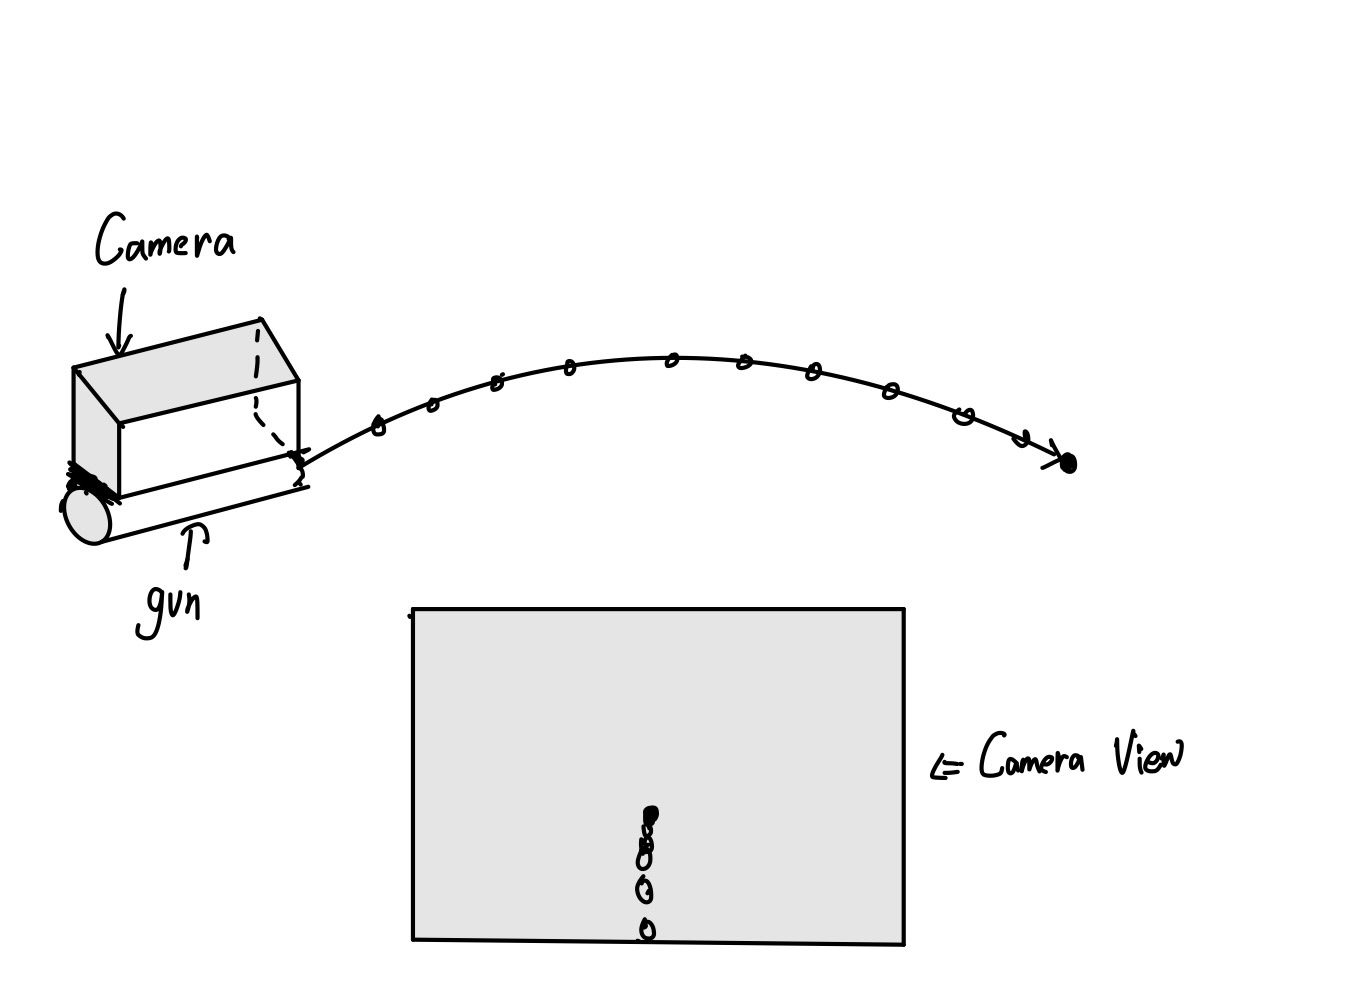 Camera
gun
Camera View